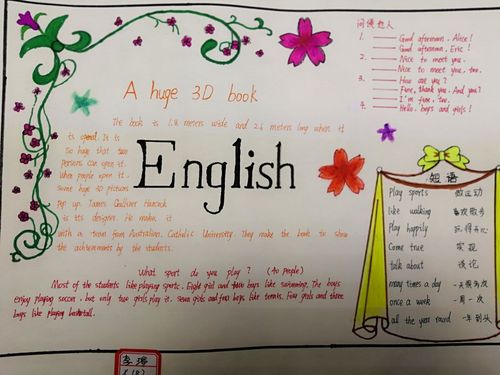 问候他人
1. Good afternoon, Alice!
Good afternoon, Eric!
2. Nice to meet you.
Nice to meet you, too.
3. How are you?
Fine, thank you. And you?
I'm fine, too.
4. Hello, boys and girls!
A huge 3D book
The book is 1.8 meters wide and 2.6 meters long when it
is opened. It is
so huge that two
persons can open it.
When people open it.
Some huge 3D pictures
Pop up. James Gulliver Hancock
is its designer. He makes it
with a team from Australian Catholic University. They make the book to show
the achievements by the students.
English
What sport do you play? (40 people)
Most of the students like playing sports. Eight girl and boys like swimming. The boys
enjoy playing soccer, but only two girls play it. Seven girls and four boys like tennis. Four girls and three
boys like playing basketball.
短语
Play sports 做运动
like walking 喜欢散步
Play happily 玩得开心
Come true 实现
talk about 谈论
many times a day 一天很多次
once a week 一周一次
all the year round 一年到头